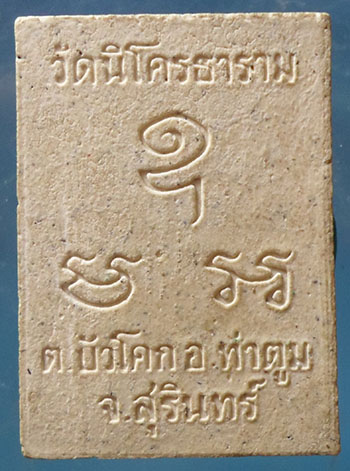 วัดนิโครธาราม
ต.บัวโคก อ.ท่าตูม
จ.สุรินทร์